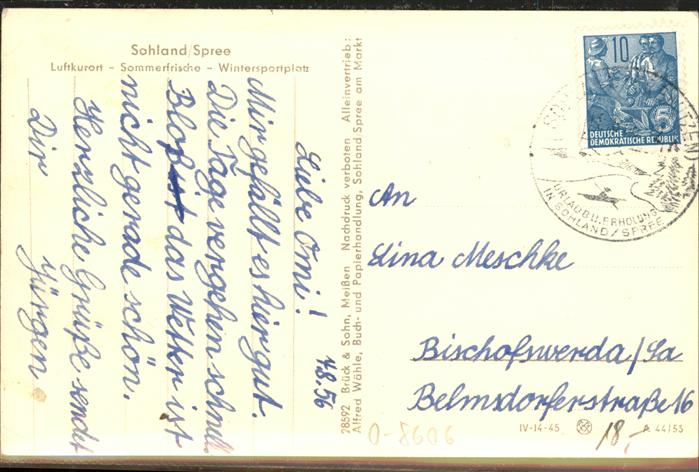 Sohland/Spree
Luftkurort - Sommerfrische - Wintersportplatz
1.8.56
Liebe Omi!
Mir gefällt es hier gut.
Die Tage vergehen schnell.
Bloß ist das Wetter ist
nicht gerade schön.
Herzliche Grüße sendet
Dir Jürgen
28592 Brück & Sohn, Meißen Nachdruck verboten Alleinvertrieb:
Alfred Wähle, Buch- und Papierhandlung, Sohland Spree am Markt
10
5
DEUTSCHE
DEMOKRATISCHE REPUBLIK
URLAUB U. ERHOLUNG
IN SOHLAND/SPREE
An
Lina Meschke
Bischofswerda/Sa
Belmsdorferstraße 16
IV-14-45
A 44/55
O-8606
18,-